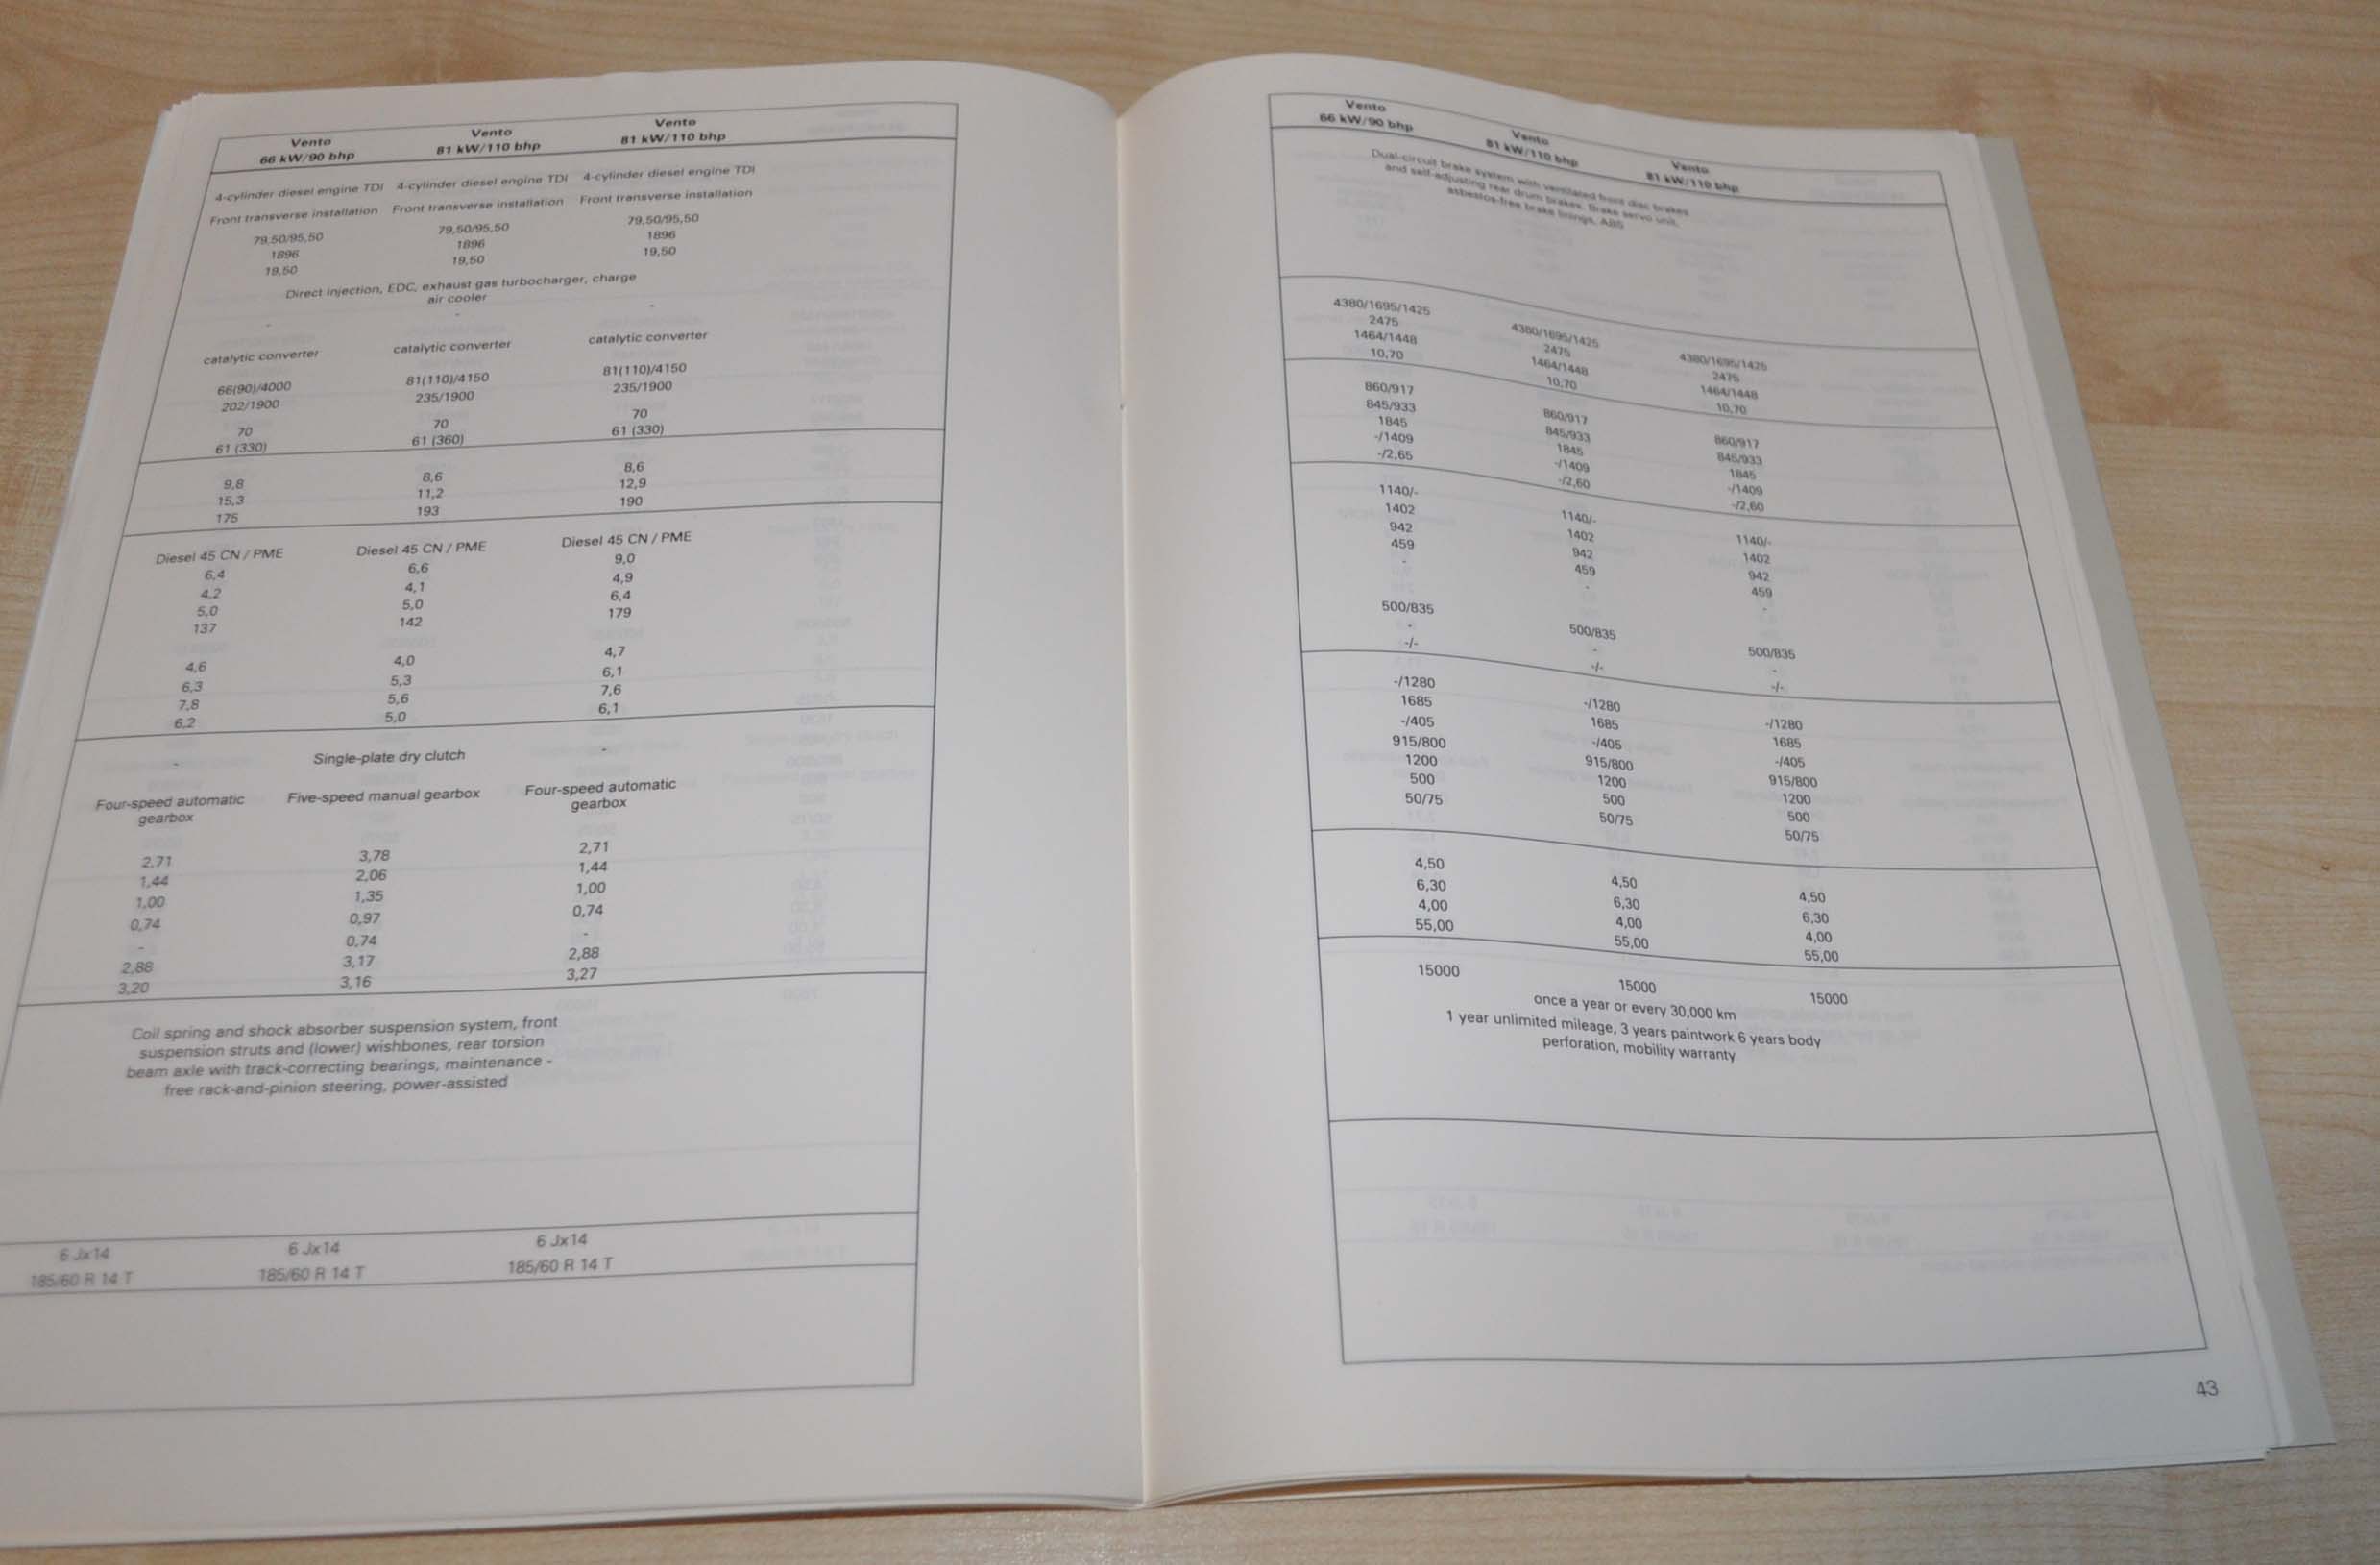 Vento Vento Vento
66 kW/90 bhp 81 kW/110 bhp 81 kW/110 bhp
4-cylinder diesel engine TDI 4-cylinder diesel engine TDI 4-cylinder diesel engine TDI
Front transverse installation Front transverse installation Front transverse installation
79,50/95,50 79,50/95,50 79,50/95,50
1896 1896 1896
19,50 19,50 19,50
Direct injection, EDC, exhaust gas turbocharger, charge
air cooler
- - -
catalytic converter catalytic converter catalytic converter
66(90)/4000 81(110)/4150 81(110)/4150
202/1900 235/1900 235/1900
70 70 70
61 (330) 61 (360) 61 (330)
9,8 8,6 8,6
15,3 11,2 12,9
175 193 190
Diesel 45 CN / PME Diesel 45 CN / PME Diesel 45 CN / PME
6,4 6,6 9,0
4,2 4,1 4,9
5,0 5,0 6,4
137 142 179
4,6 4,0 4,7
6,3 5,3 6,1
7,8 5,6 7,6
6,2 5,0 6,1
- Single-plate dry clutch -
Four-speed automatic Five-speed manual gearbox Four-speed automatic
gearbox gearbox
2,71 3,78 2,71
1,44 2,06 1,44
1,00 1,35 1,00
0,74 0,97 0,74
- 0,74 -
2,88 3,17 2,88
3,20 3,16 3,27
Coil spring and shock absorber suspension system, front
suspension struts and (lower) wishbones, rear torsion
beam axle with track-correcting bearings, maintenance -
free rack-and-pinion steering, power-assisted
6 Jx14 6 Jx14 6 Jx14
185/60 R 14 T 185/60 R 14 T 185/60 R 14 T
Vento Vento Vento
66 kW/90 bhp 81 kW/110 bhp 81 kW/110 bhp
Dual-circuit brake system with ventilated front disc brakes
and self-adjusting rear drum brakes. Brake servo unit,
asbestos-free brake linings, ABS
4380/1695/1425 4380/1695/1425 4380/1695/1425
2475 2475 2475
1464/1448 1464/1448 1464/1448
10,70 10,70 10,70
860/917 860/917 860/917
845/933 845/933 845/933
1845 1845 1845
-/1409 -/1409 -/1409
-/2,65 -/2,60 -/2,60
1140/- 1140/- 1140/-
1402 1402 1402
942 942 942
459 459 459
- - -
500/835 500/835 500/835
- - -
-/- -/- -/-
-/1280 -/1280 -/1280
1685 1685 1685
-/405 -/405 -/405
915/800 915/800 915/800
1200 1200 1200
500 500 500
50/75 50/75 50/75
4,50 4,50 4,50
6,30 6,30 6,30
4,00 4,00 4,00
55,00 55,00 55,00
15000 15000 15000
once a year or every 30,000 km
1 year unlimited mileage, 3 years paintwork 6 years body
perforation, mobility warranty
43